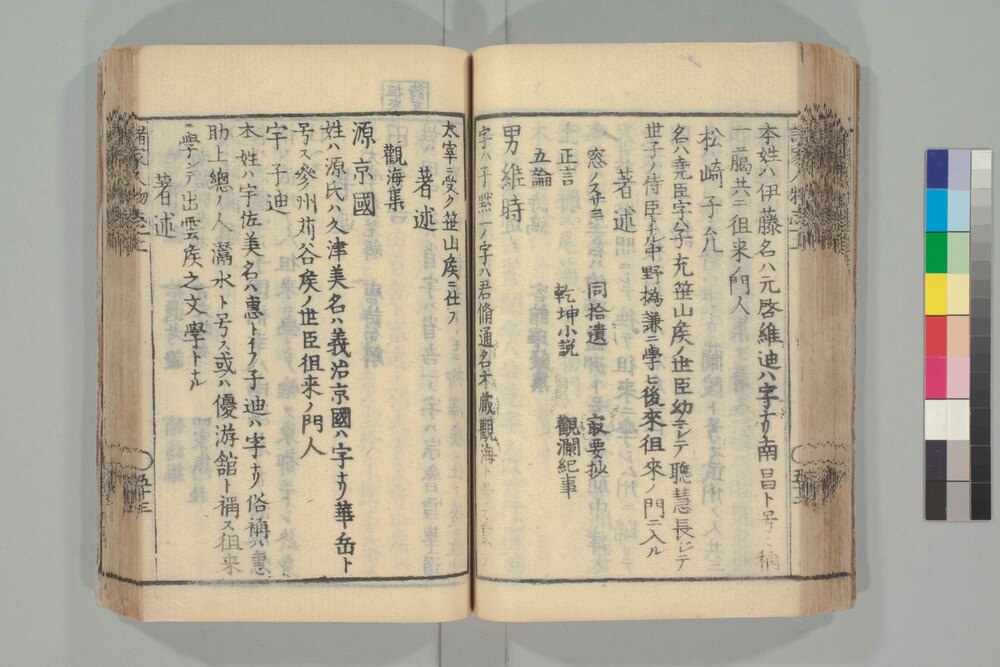 本姓ハ伊藤名ハ元啓維迪ハ字ナリ南昌ト号ス稱
一萬共ニ徂來ノ門人
松崎子允
名ハ尭臣字ハ子允笹山矦ノ世臣幼ヨシテ聰慧長シテ
世子ノ侍臣トナル中野撝謙ニ學ヒ後來徂來ノ門ニ入ル
著述
窓ノスサミ 同拾遺 㝡要抄
正言 乾坤小説 觀瀾紀事
五論
男維時
字ハ子黙一ノ字ハ君脩通名木藏觀海ト号ス業
太宰ニ受ク笹山矦ニ仕フ
著述
觀海集
源京國
姓ハ源氏ハ久津美名ハ義治京國ハ字ナリ華岳ト
号ス參州苅谷矦ノ世臣徂來ノ門人
宇子迪
本姓ハ宇佐美名ハ惠トイフ子迪ハ字ナリ俗稱ハ惠
助上總ノ人灊水ト号ス或ハ優游館ト稱ス徂來
ニ學ンデ出雲矦之文學トナル
著述
諸家人物志上
五十三